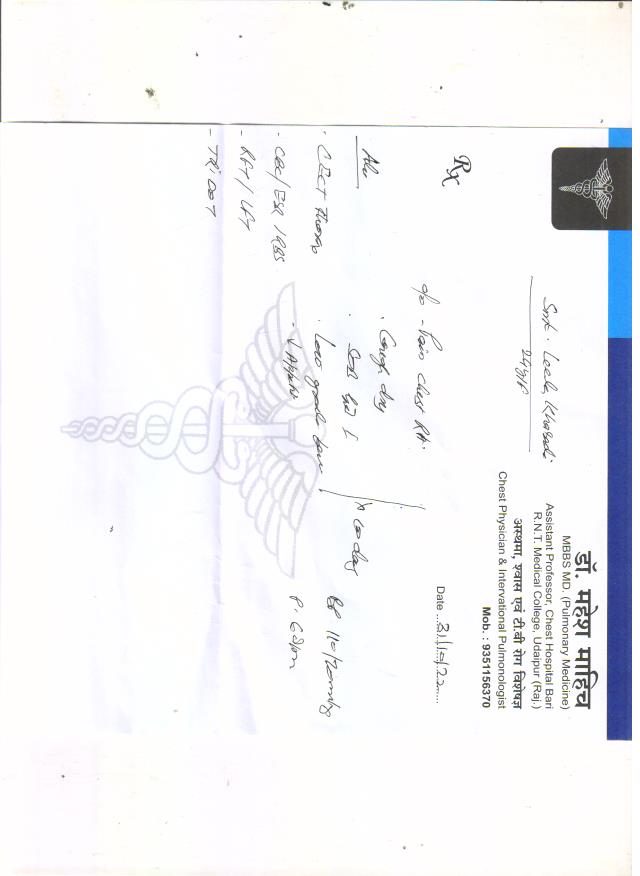 डॉ. महेश माहिच
MBBS MD. (Pulmonary Medicine)
Assistant Professor, Chest Hospital Bari
R.N.T. Medical College, Udaipur (Raj.)
अस्थमा, श्वास एवं टी.बी रोग विशेषज्ञ
Chest Physician & Intervational Pulmonologist
Mob. : 9351156370
Smt. Leela
24y/F
Date ..31/10/22....
Rx
c/o - Pain Chest Rt.
. Cough dry
. SOB
. Low grade fever
- ↓ Appetite
BP 110/70 mmHg
Adv
. CECT Thorax
. CBC/ESR/RBS
- RFT/LFT
- TRI DOT